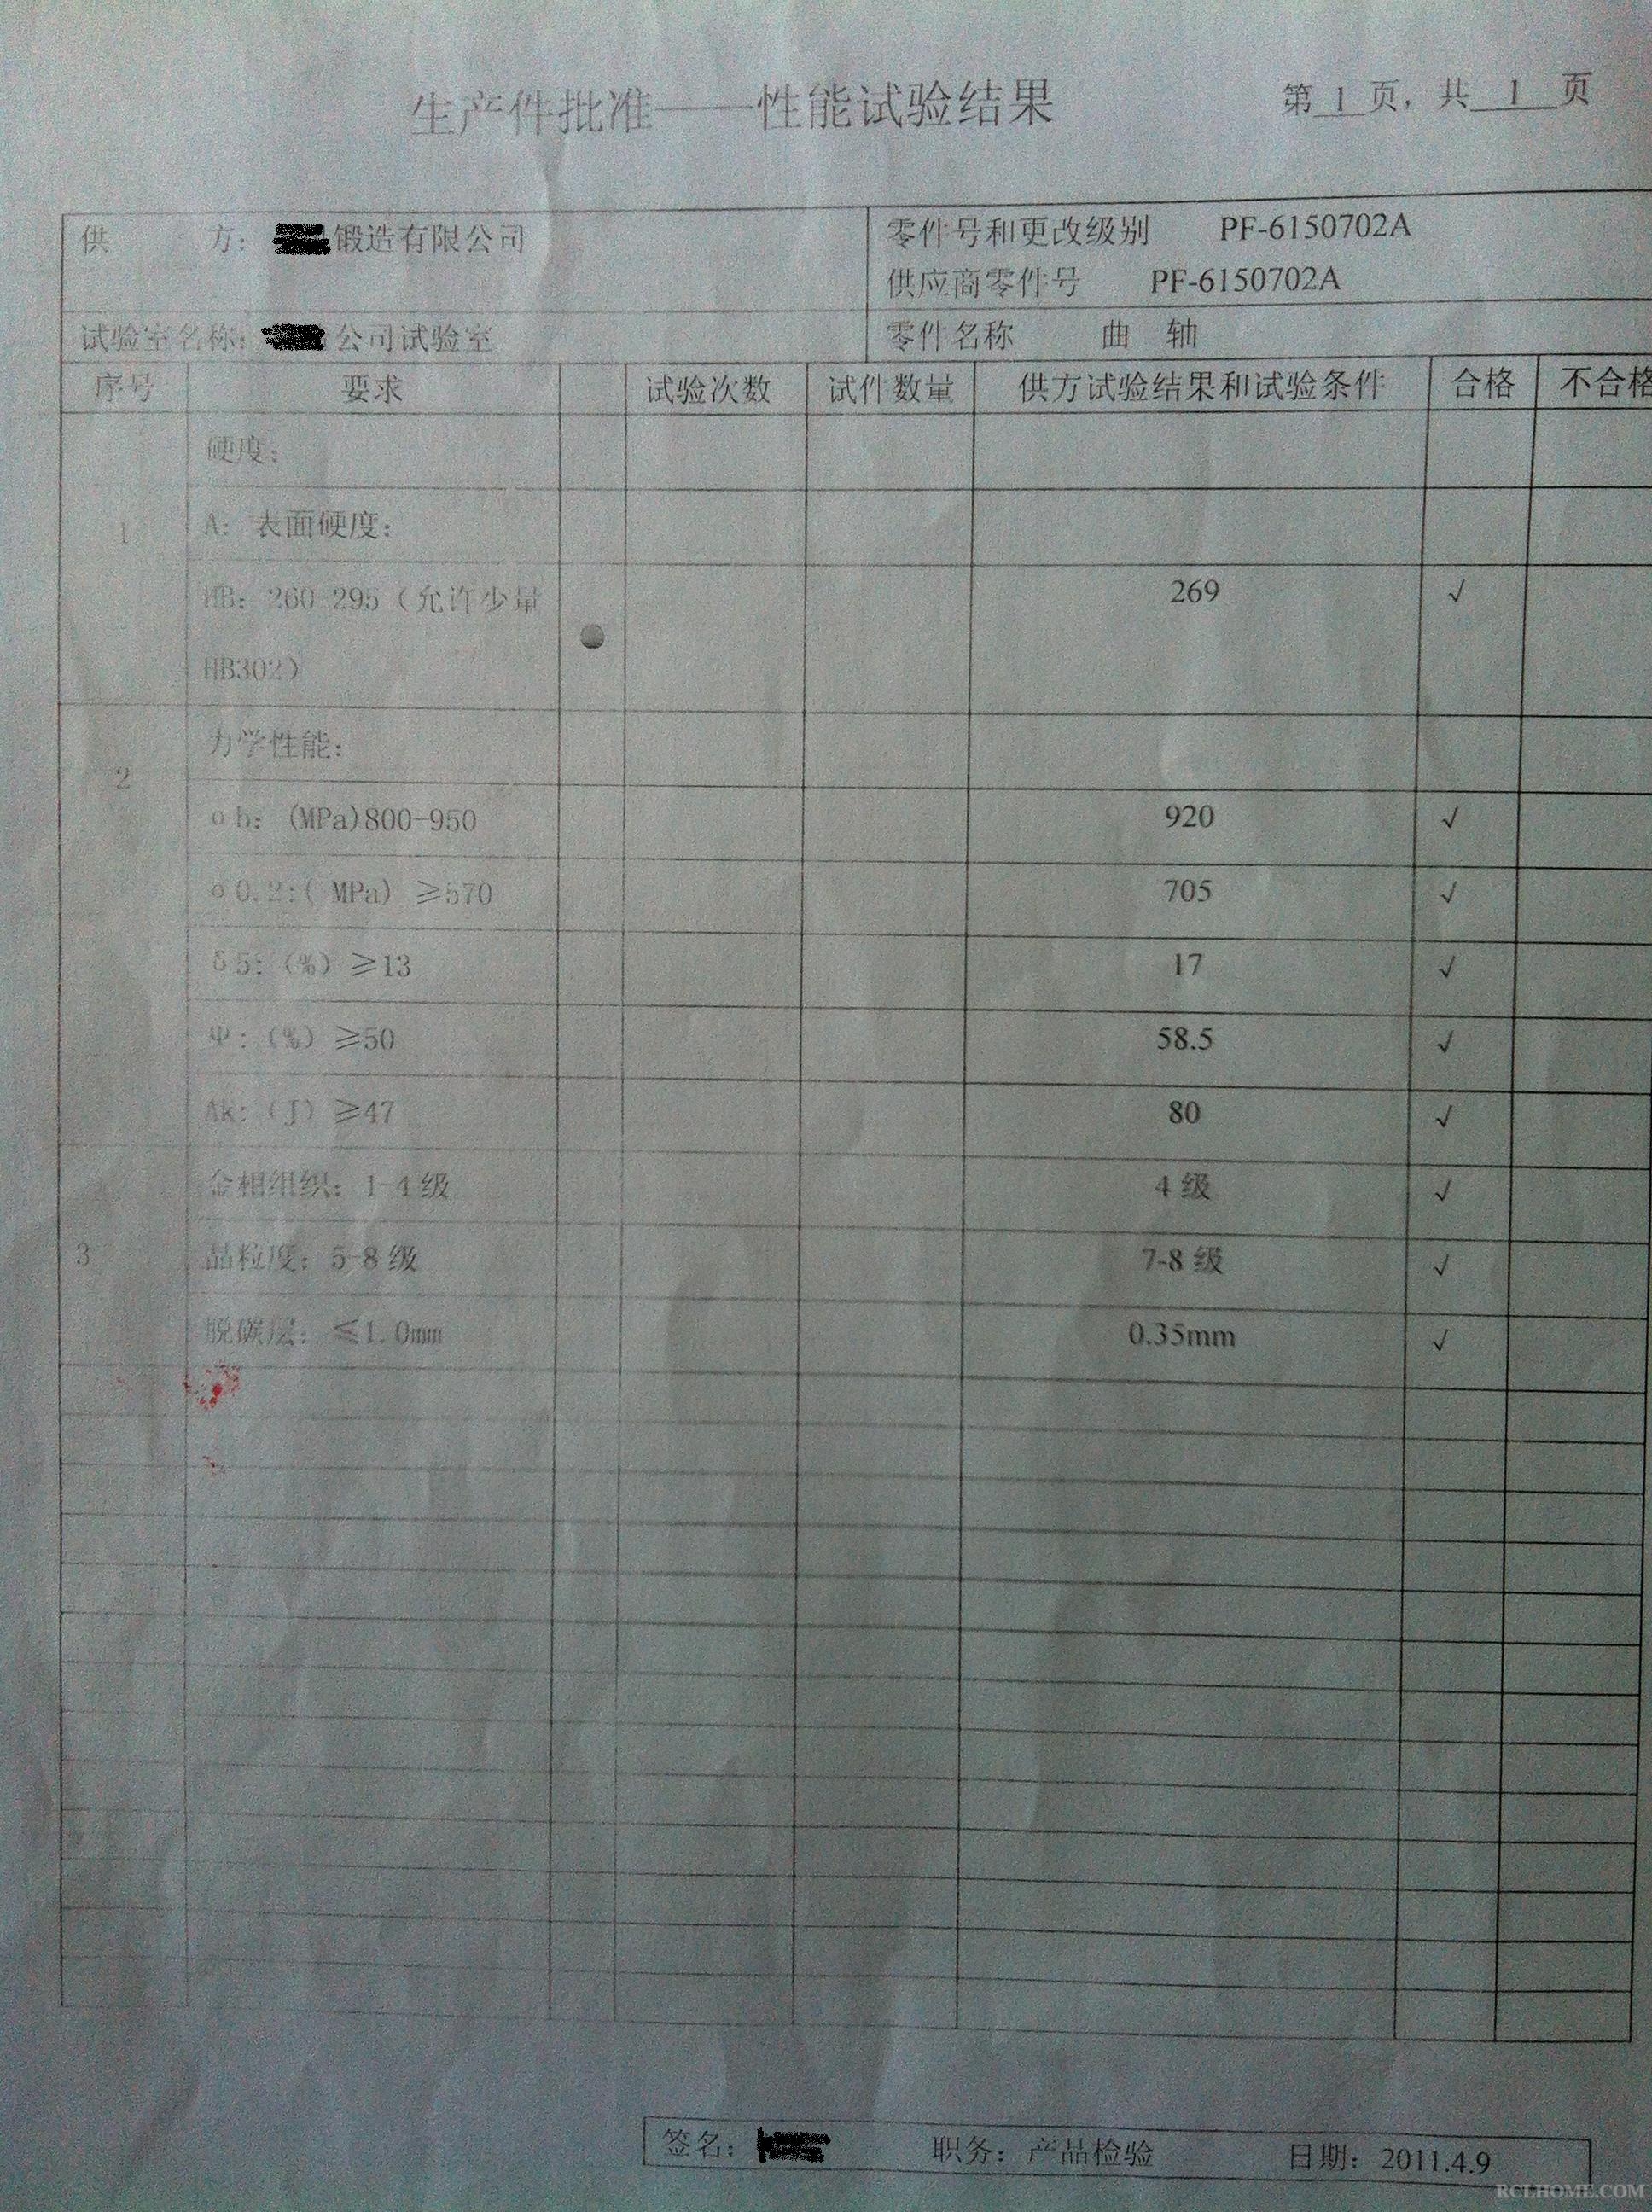 生产件批准——性能试验结果 第 1 页，共 1 页
供 方： 锻造有限公司
零件号和更改级别 PF-6150702A
供应商零件号 PF-6150702A
试验室名称： 公司试验室 零件名称 曲 轴
序号 要求 试验次数 试件数量 供方试验结果和试验条件 合格 不合格
硬度：
1 A：表面硬度：
HB：260-295（允许少量 269 √
HB302）
力学性能：
2
σb：(MPa)800-950 920 √
σ0.2:( MPa) ≥570 705 √
δ5:（%）≥13 17 √
Ψ:（%）≥50 58.5 √
Ak:（J）≥47 80 √
金相组织：1-4 级 4 级 √
3 晶粒度：5-8 级 7-8 级 √
脱碳层：≤1.0mm 0.35mm √
签名： 职务：产品检验 日期：2011.4.9
RCLHOME.COM